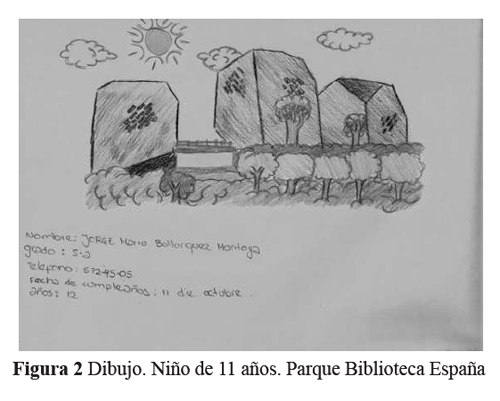 Nombre: JORGE Mario Bohorquez Montoya
grado: 5-2
Telefono: 572-45-05
Fecha de cumpleaños: 11 de octubre.
años: 12
Figura 2 Dibujo. Niño de 11 años. Parque Biblioteca España